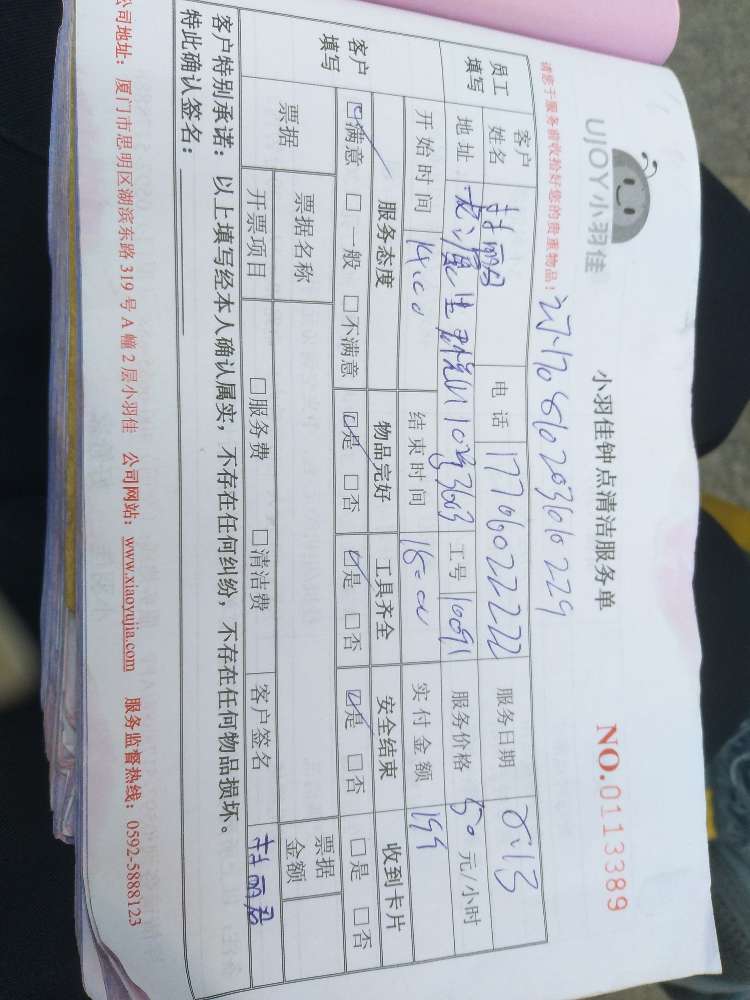 UJOY小羽佳
小羽佳钟点清洁服务单
NO.0113389
请您于服务前收拾好您的贵重物品!
员工填写
客户姓名
电话 17706022222
服务日期 8.13
地址
工号 10091
服务价格 50 元/小时
开始时间 14:00
结束时间 18:00
实付金额 199
客户填写
服务态度 物品完好 工具齐全 安全结束 收到卡片
☑满意 □一般 □不满意 ☑是 □否 ☑是 □否 ☑是 □否 □是 □否
票据 票据名称 票据金额
开票项目 □服务费 □清洁费 客户签名
客户特别承诺:以上填写经本人确认属实,不存在任何纠纷,不存在任何物品损坏。
特此确认签名:
公司地址:厦门市思明区湖滨东路 319 号 A 幢 2 层小羽佳 公司网站:www.xiaoyujia.com 服务监督热线:0592-5888123